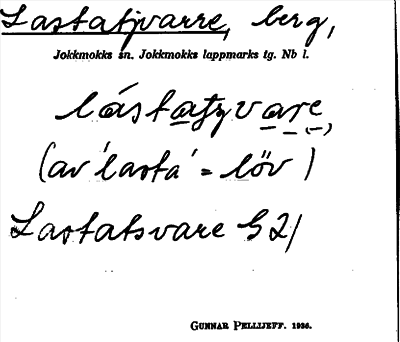 Lastatjvarre, berg,
Jokkmokks sn. Jokkmokks lappmarks tg. Nb l.
lástatʒvare
(av 'lasta' = löv)
Lastatsvare G2/
GUNNAR PELLIJEFF. 1936.